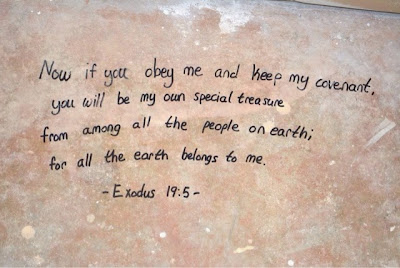 Now if you obey me and keep my covenant,
you will be my own special treasure
from among all the people on earth;
for all the earth belongs to me.
- Exodus 19:5 -